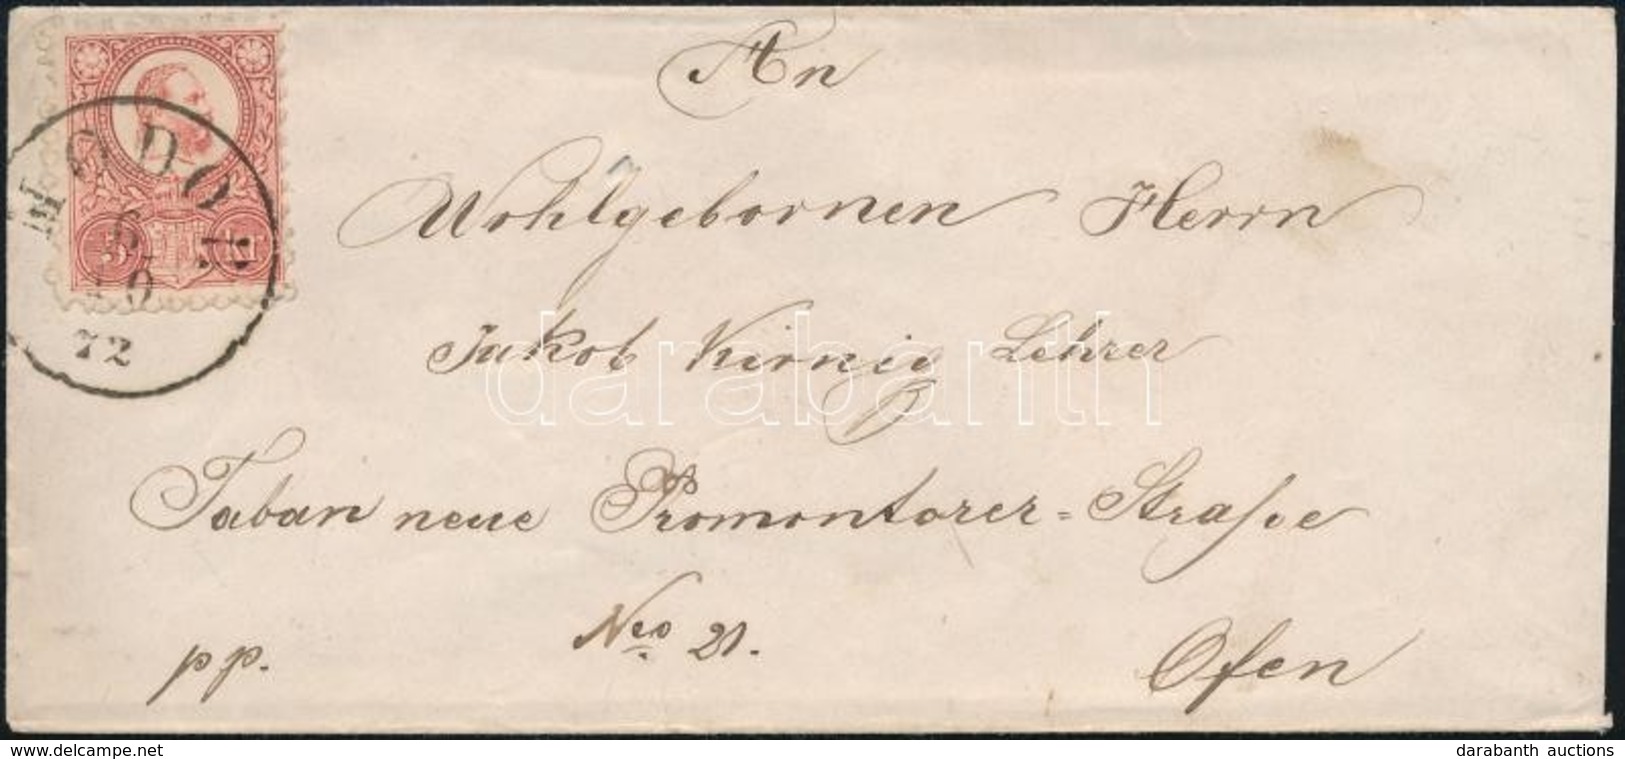 An
Wohlgebornen Herrn
Jakob Kirnig Lehrer
Taban neue Promontorer=Straße
Nro 21.
pp.
Ofen
MODOR
72
5 Kr
darabanth
www.delcampe.net
darabanth auctions